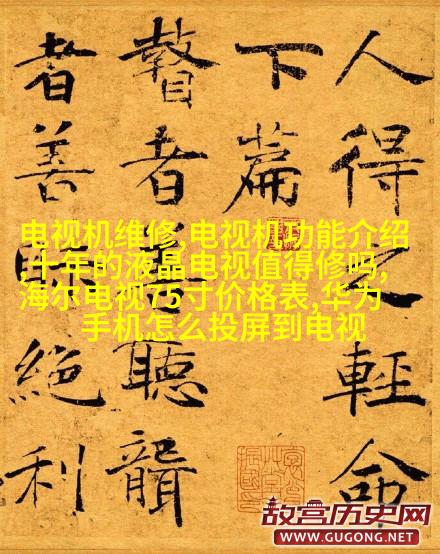 人得之輕命
下篇
瞽者善聽聾
者善視絕利
电视机维修,电视机功能介绍
,十年的液晶电视值得修吗,
海尔电视75寸价格表,华为
手机怎么投屏到电视
故宫历史网
WWW.GUGONG.NET